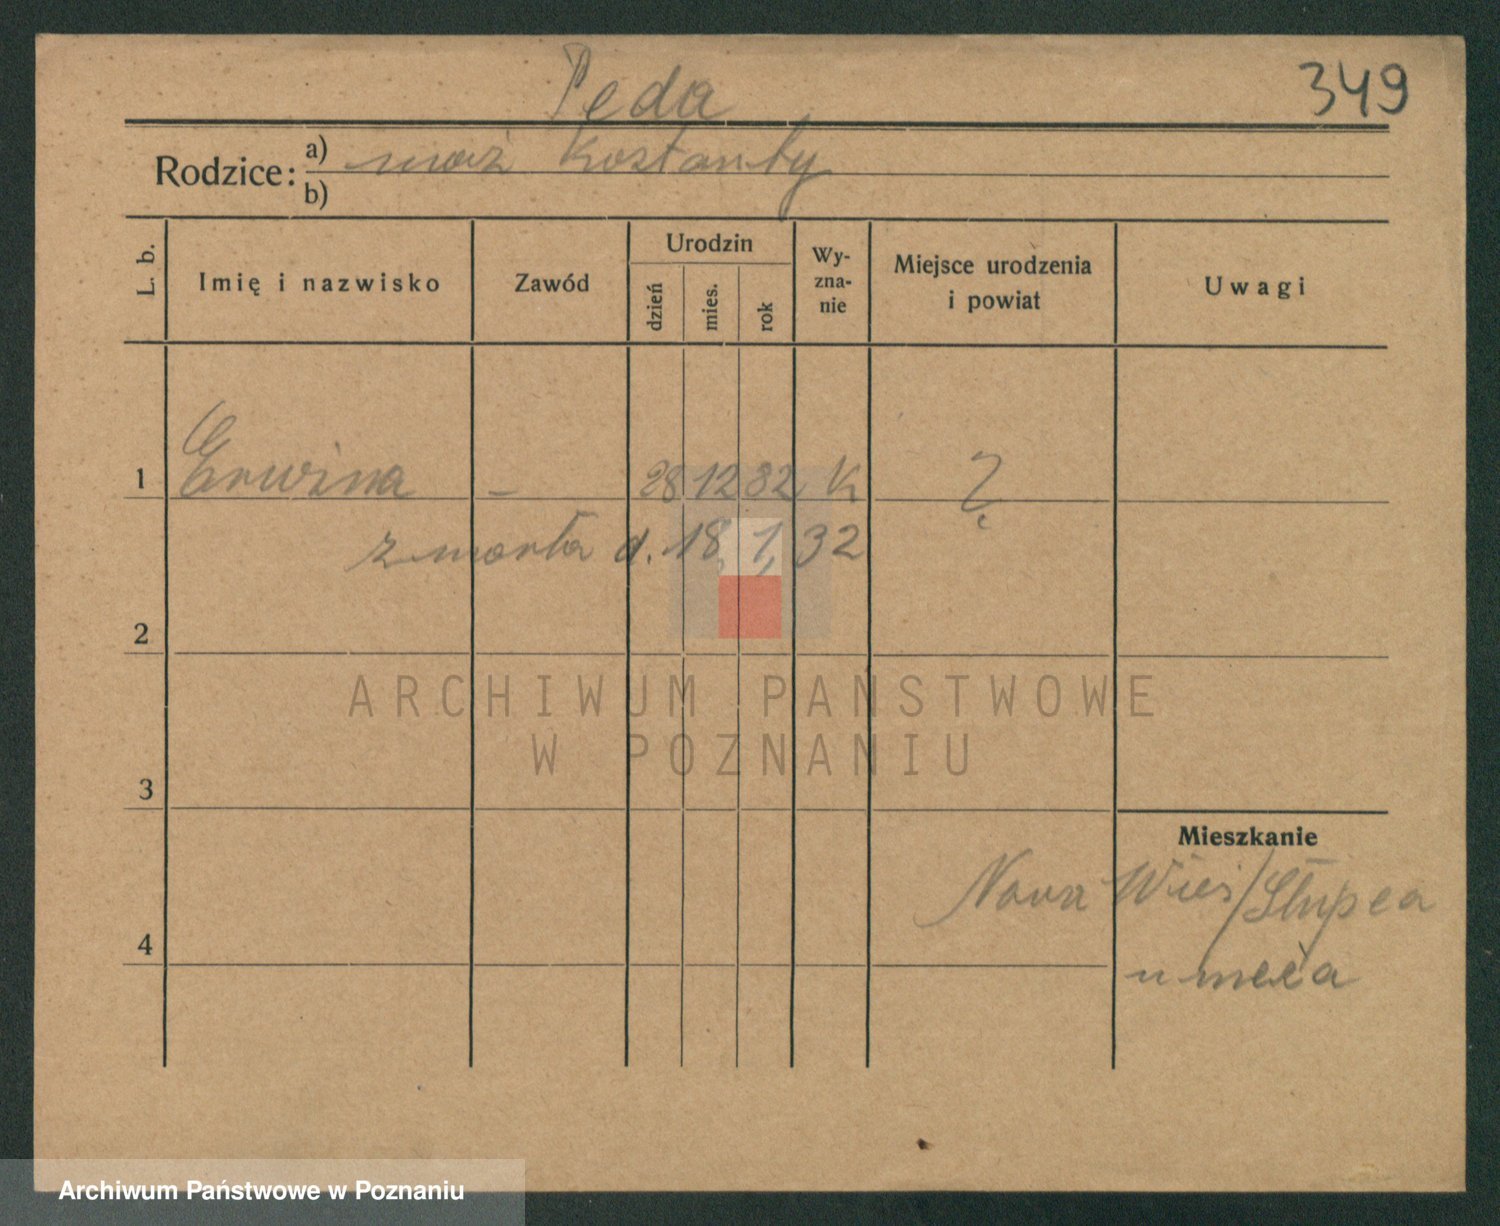 Pęda
349
Rodzice: a) mąż Kostanty
b)
L. b. Imię i nazwisko Zawód Urodzin dzień mies. rok Wy-zna-nie Miejsce urodzenia i powiat Uwagi
1 Erwina – 28 12 82 K ?
zmarła d. 18, 1, 32
2
ARCHIWUM PAŃSTWOWE
W POZNANIU
3
Mieszkanie
Nowa Wieś/Słupca
4
u męża
Archiwum Państwowe w Poznaniu